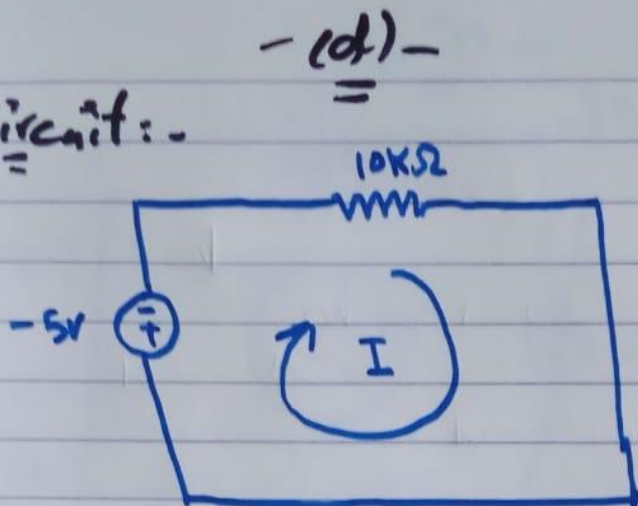 - (d) -
ircuit:-
10KΩ
-5V
-
+
I